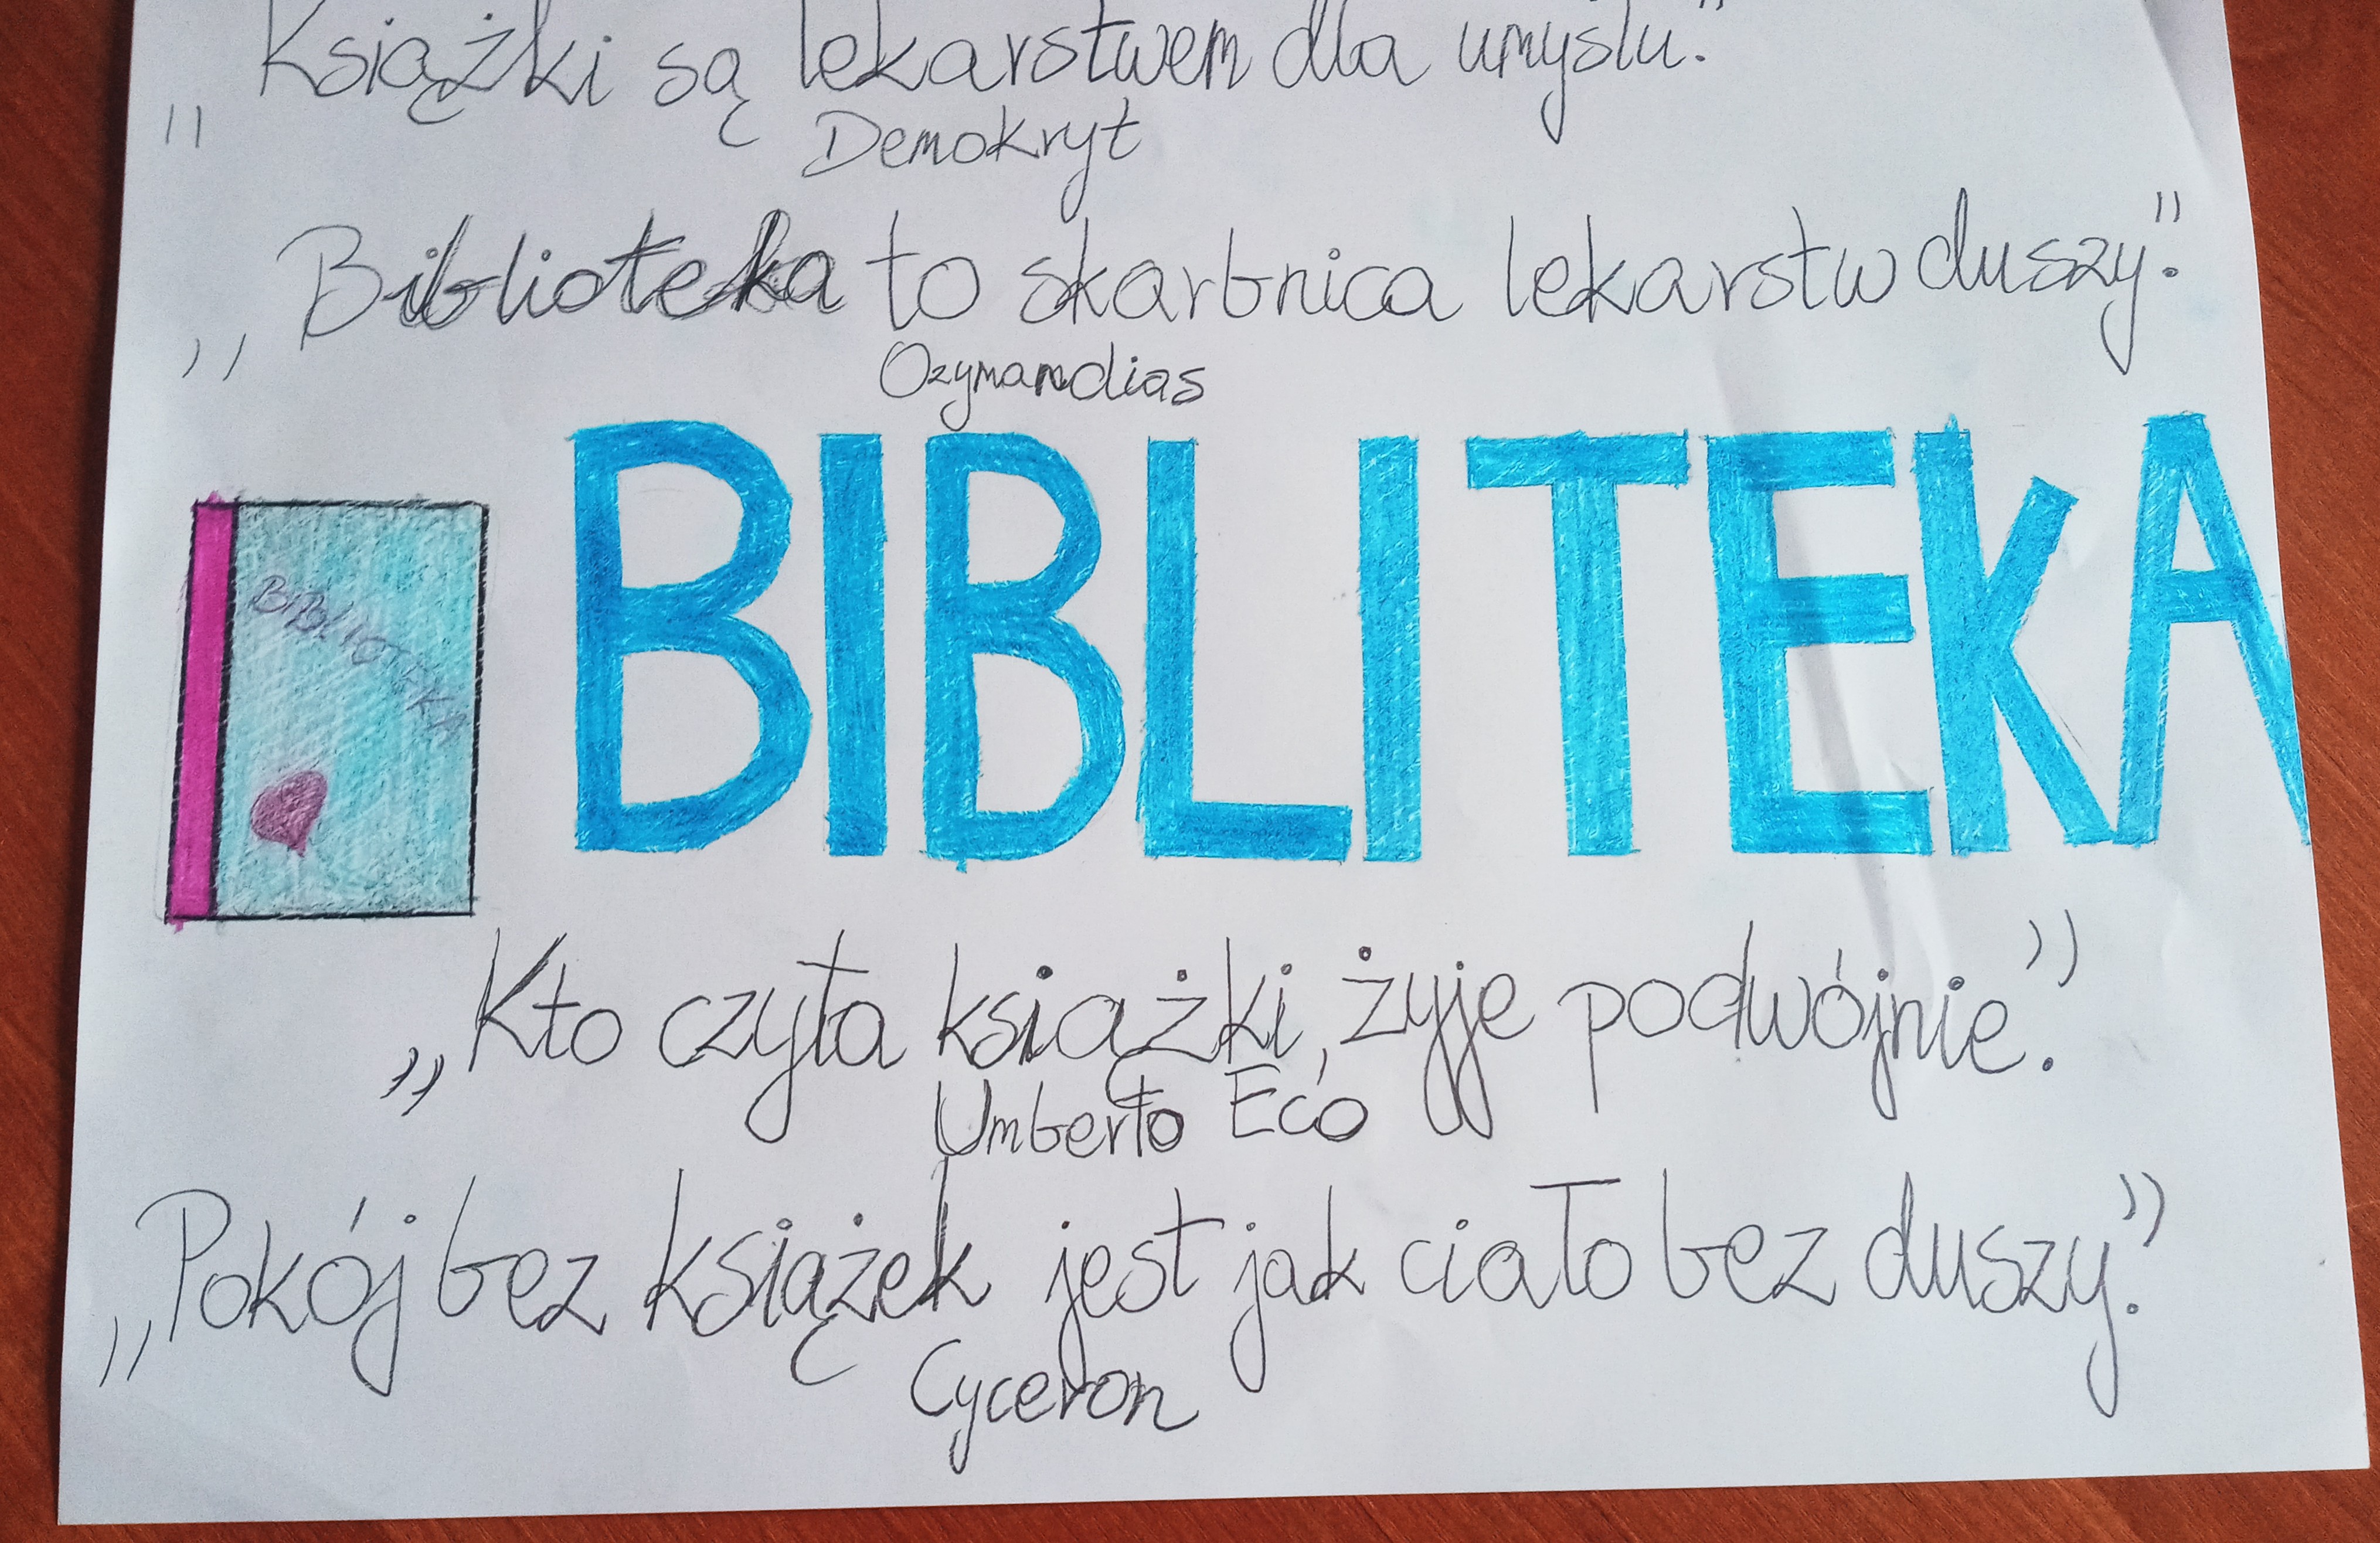 „Książki są lekarstwem dla umysłu."
Demokryt
„Biblioteka to skarbnica lekarstw duszy."
Ozymandias
BIBLITEKA
BIBLIOTEKA
„Kto czyta książki, żyje podwójnie."
Umberto Eco
„Pokój bez książek jest jak ciało bez duszy."
Cyceron